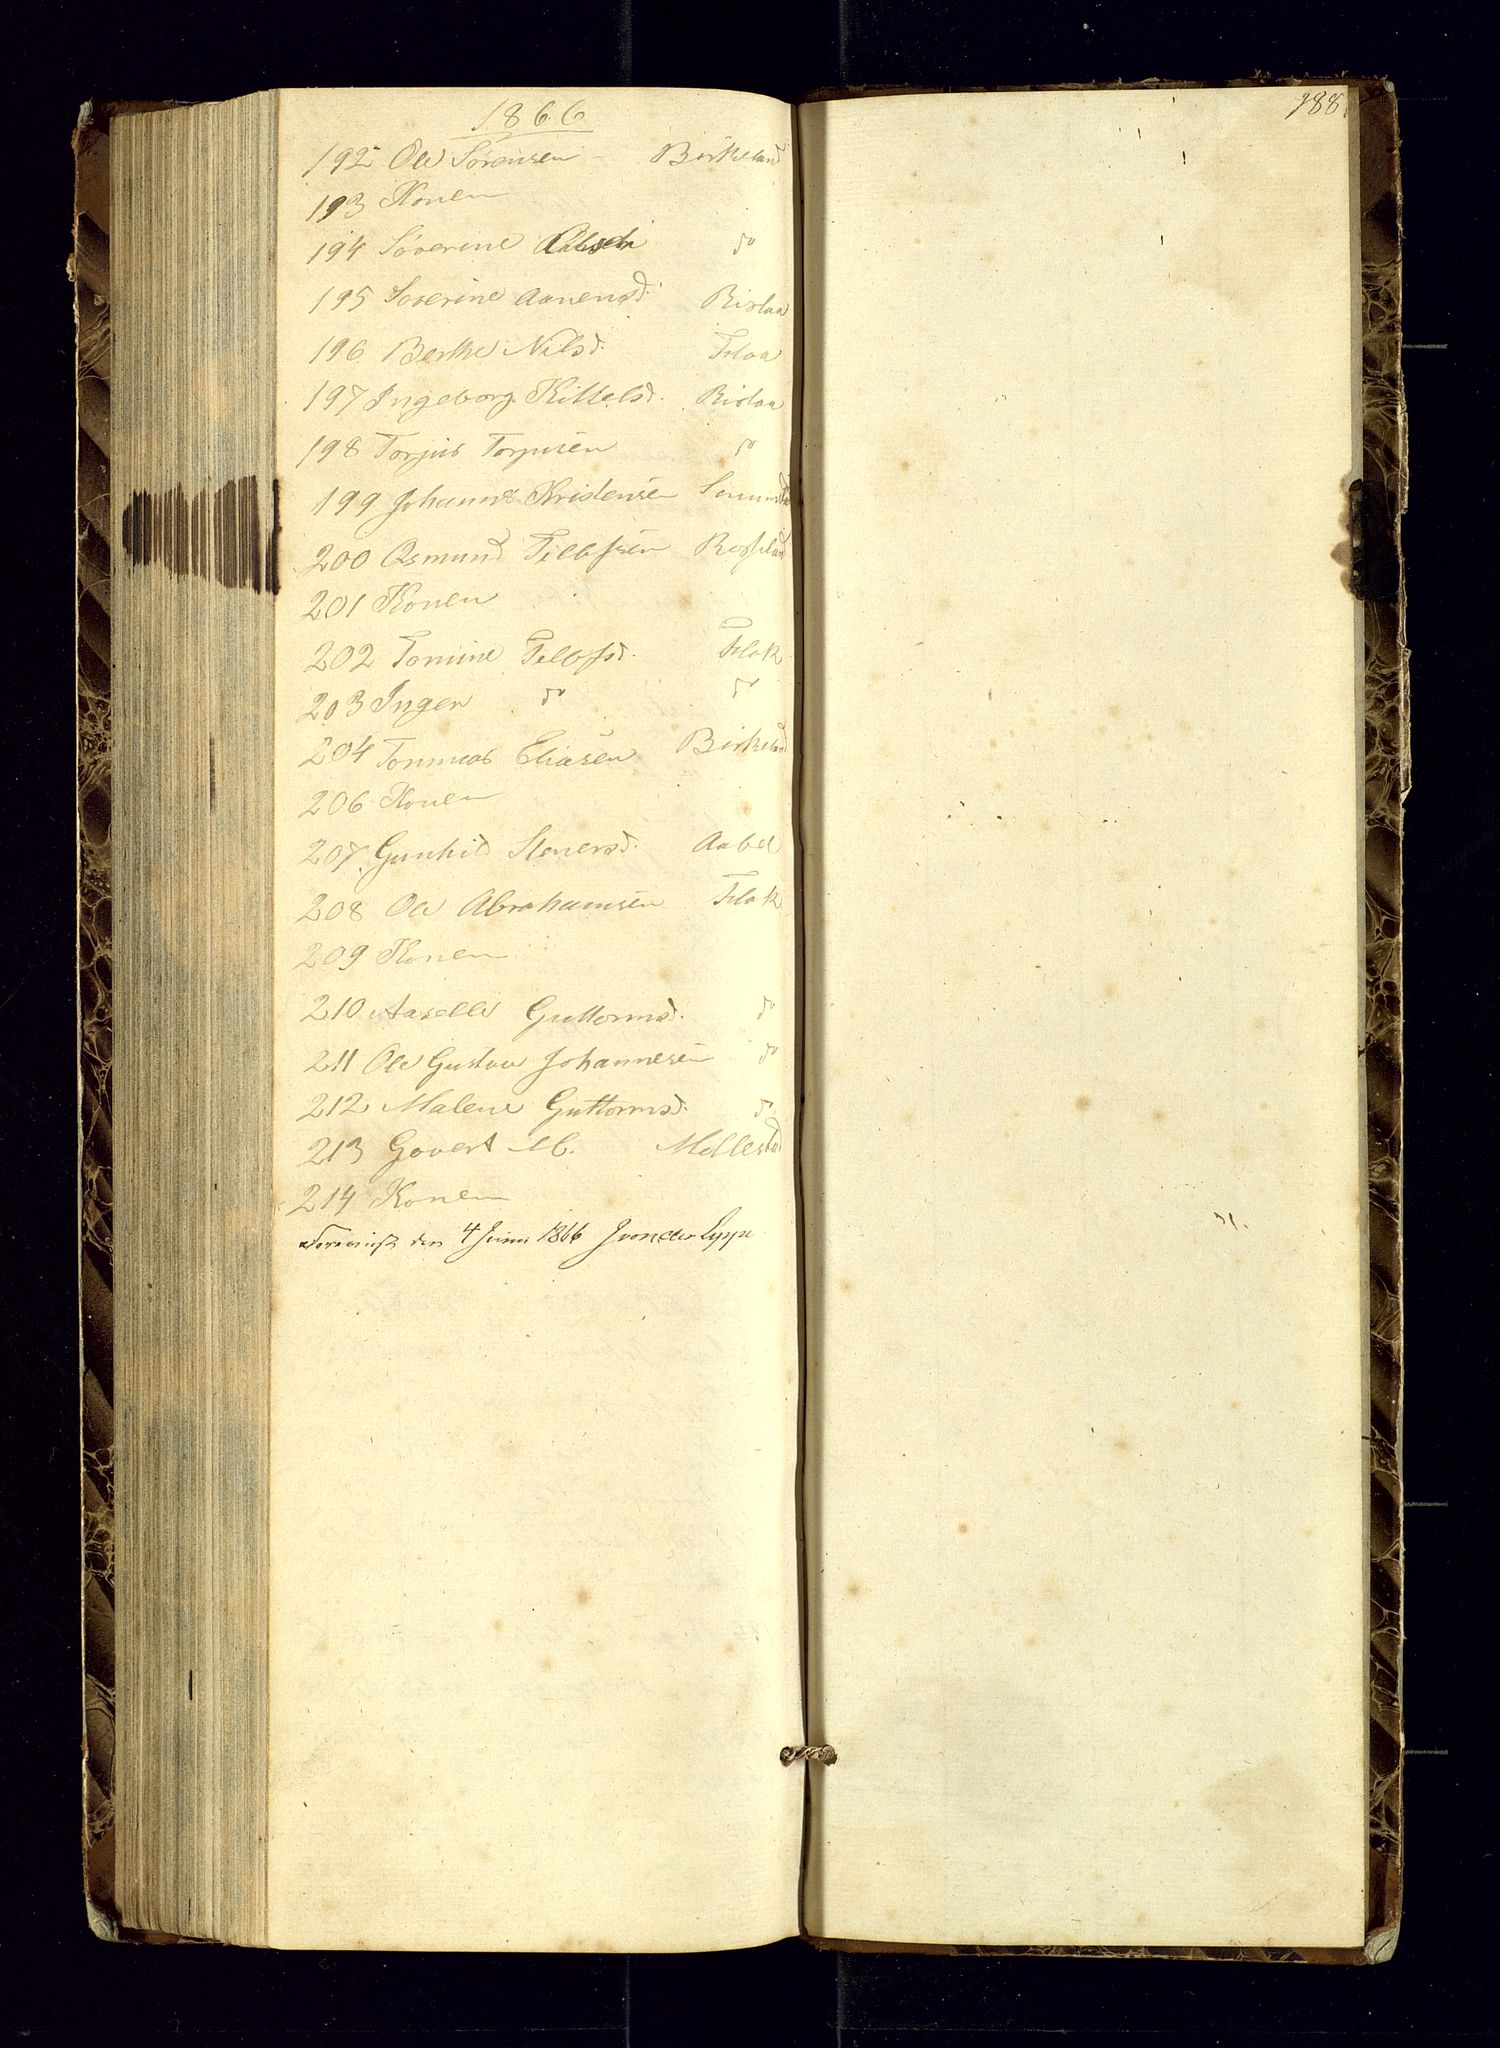 1866
192 Ole Sørensen - Birkeland
193 Konen
194 Søverine do
195 Soverine Aanensd. Birlaa
196 Berthe Nilsd. Flaa
197 Ingeborg Kittelsd. Birlaa
198 Torjus Torjusen do
199 Johannes Kristensen
200 Osmund Tellefsen
201 Konen
202 Tomine Tellefsd. Flak
203 Inger do do
204 Tommas Eliasen Birkeland
206 Konen
207 Gunhild Stenersd. Aabel
208 Ole Abrahamsen Flak
209 Konen
210 Aaselle Guttormsd. do
211 Ole Gustav Johannesen do
212 Malene Guttormsd. do
213 Govert M. Mollestad
214 Konen
den 4 Juni 1866 J von der Lippe
188